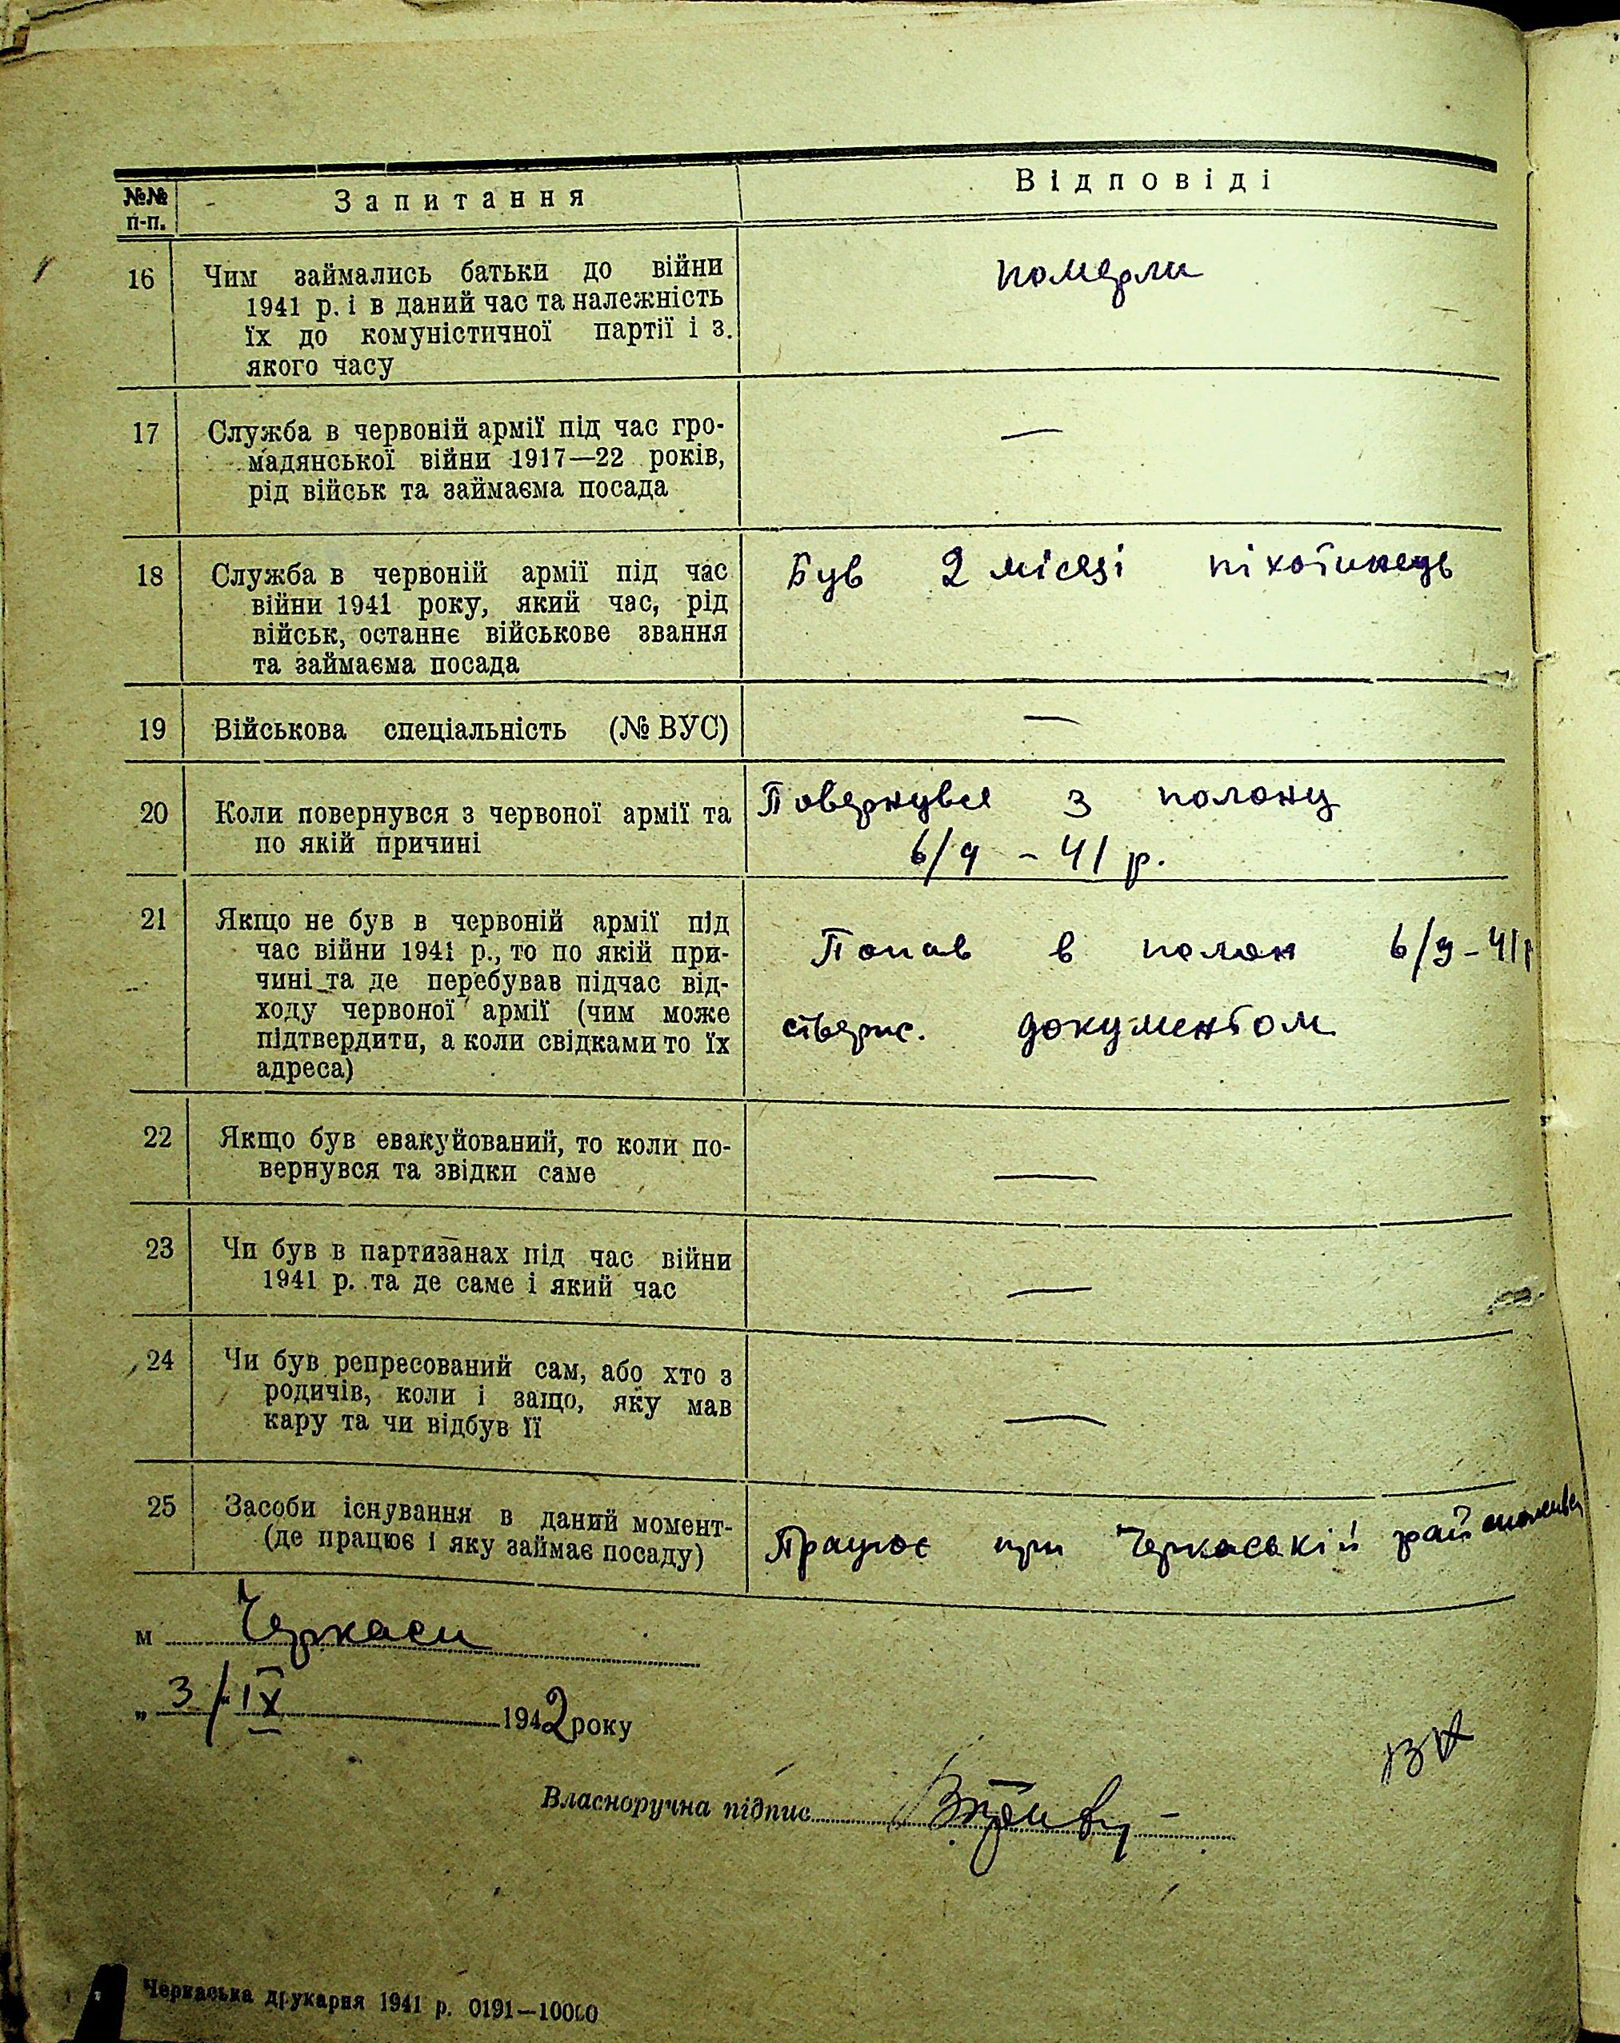 №№ п-п.
Запитання
Відповіді
16 Чим займались батьки до війни
1941 р. і в даний час та належність
їх до комуністичної партії і з.
якого часу
померли
17 Служба в червоній армії під час гро-
мадянської війни 1917—22 років,
рід військ та займаєма посада
—
18 Служба в червоній армії під час
війни 1941 року, який час, рід
військ, останнє військове звання
та займаєма посада
Був 2 місяці піхотинець
19 Військова спеціальність (№ ВУС)
—
20 Коли повернувся з червоної армії та
по якій причині
Повернувся з полону
6/9 - 41 р.
21 Якщо не був в червоній армії під
час війни 1941 р., то по якій при-
чині та де перебував підчас від-
ходу червоної армії (чим може
підтвердити, а коли свідками то їх
адреса)
Попав в полон 6/9 - 41 р
документом
22 Якщо був евакуйований, то коли по-
вернувся та звідки саме
—
23 Чи був в партизанах під час війни
1941 р. та де саме і який час
—
24 Чи був репресований сам, або хто з
родичів, коли і защо, яку мав
кару та чи відбув її
—
25 Засоби існування в даний момент-
(де працює і яку займає посаду)
Працює при Черкаській
м Черкаси
„ 3 / " IX 1942 року
Власноручна підпис
Черкаська друкарня 1941 р. 0191—10000